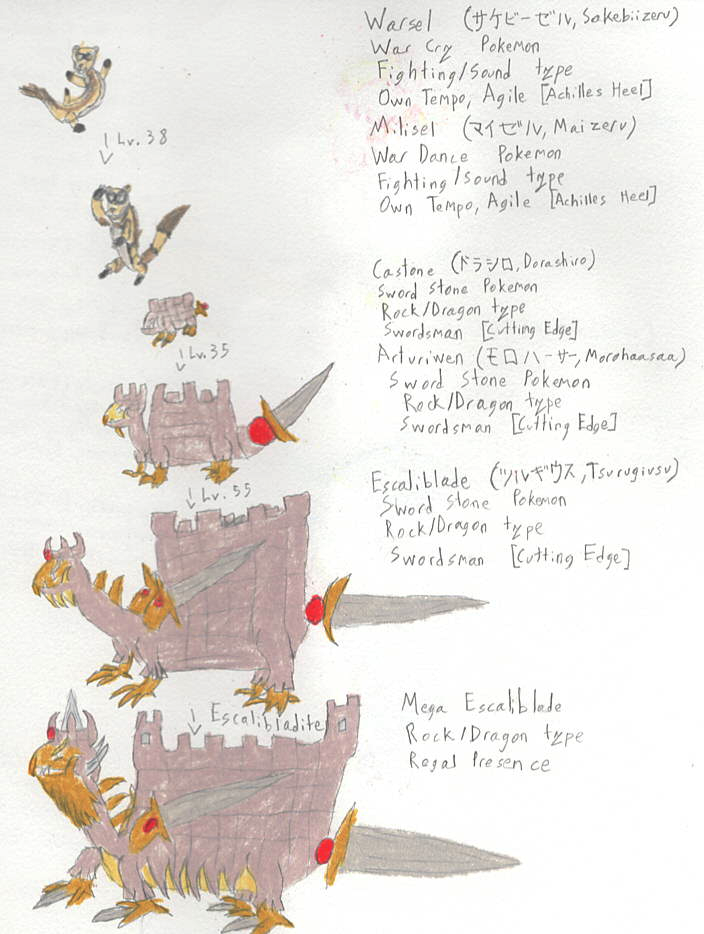 Warsel (サケビーゼル, Sakebiizeru)
War Cry Pokemon
Fighting/Sound type
Own Tempo, Agile [Achilles Heel]
Lv. 38
Milisel (マイゼル, Maizeru)
War Dance Pokemon
Fighting/Sound type
Own Tempo, Agile [Achilles Heel]
Castone (ドラシロ, Dorashiro)
Sword Stone Pokemon
Rock/Dragon type
Swordsman [Cutting Edge]
Lv. 35
Arturiwen (モロハーサー, Morohaasaa)
Sword Stone Pokemon
Rock/Dragon type
Swordsman [Cutting Edge]
Lv. 55
Escaliblade (ツルギウス, Tsurugiusu)
Sword Stone Pokemon
Rock/Dragon type
Swordsman [Cutting Edge]
Escalibladite
Mega Escaliblade
Rock/Dragon type
Regal Presence